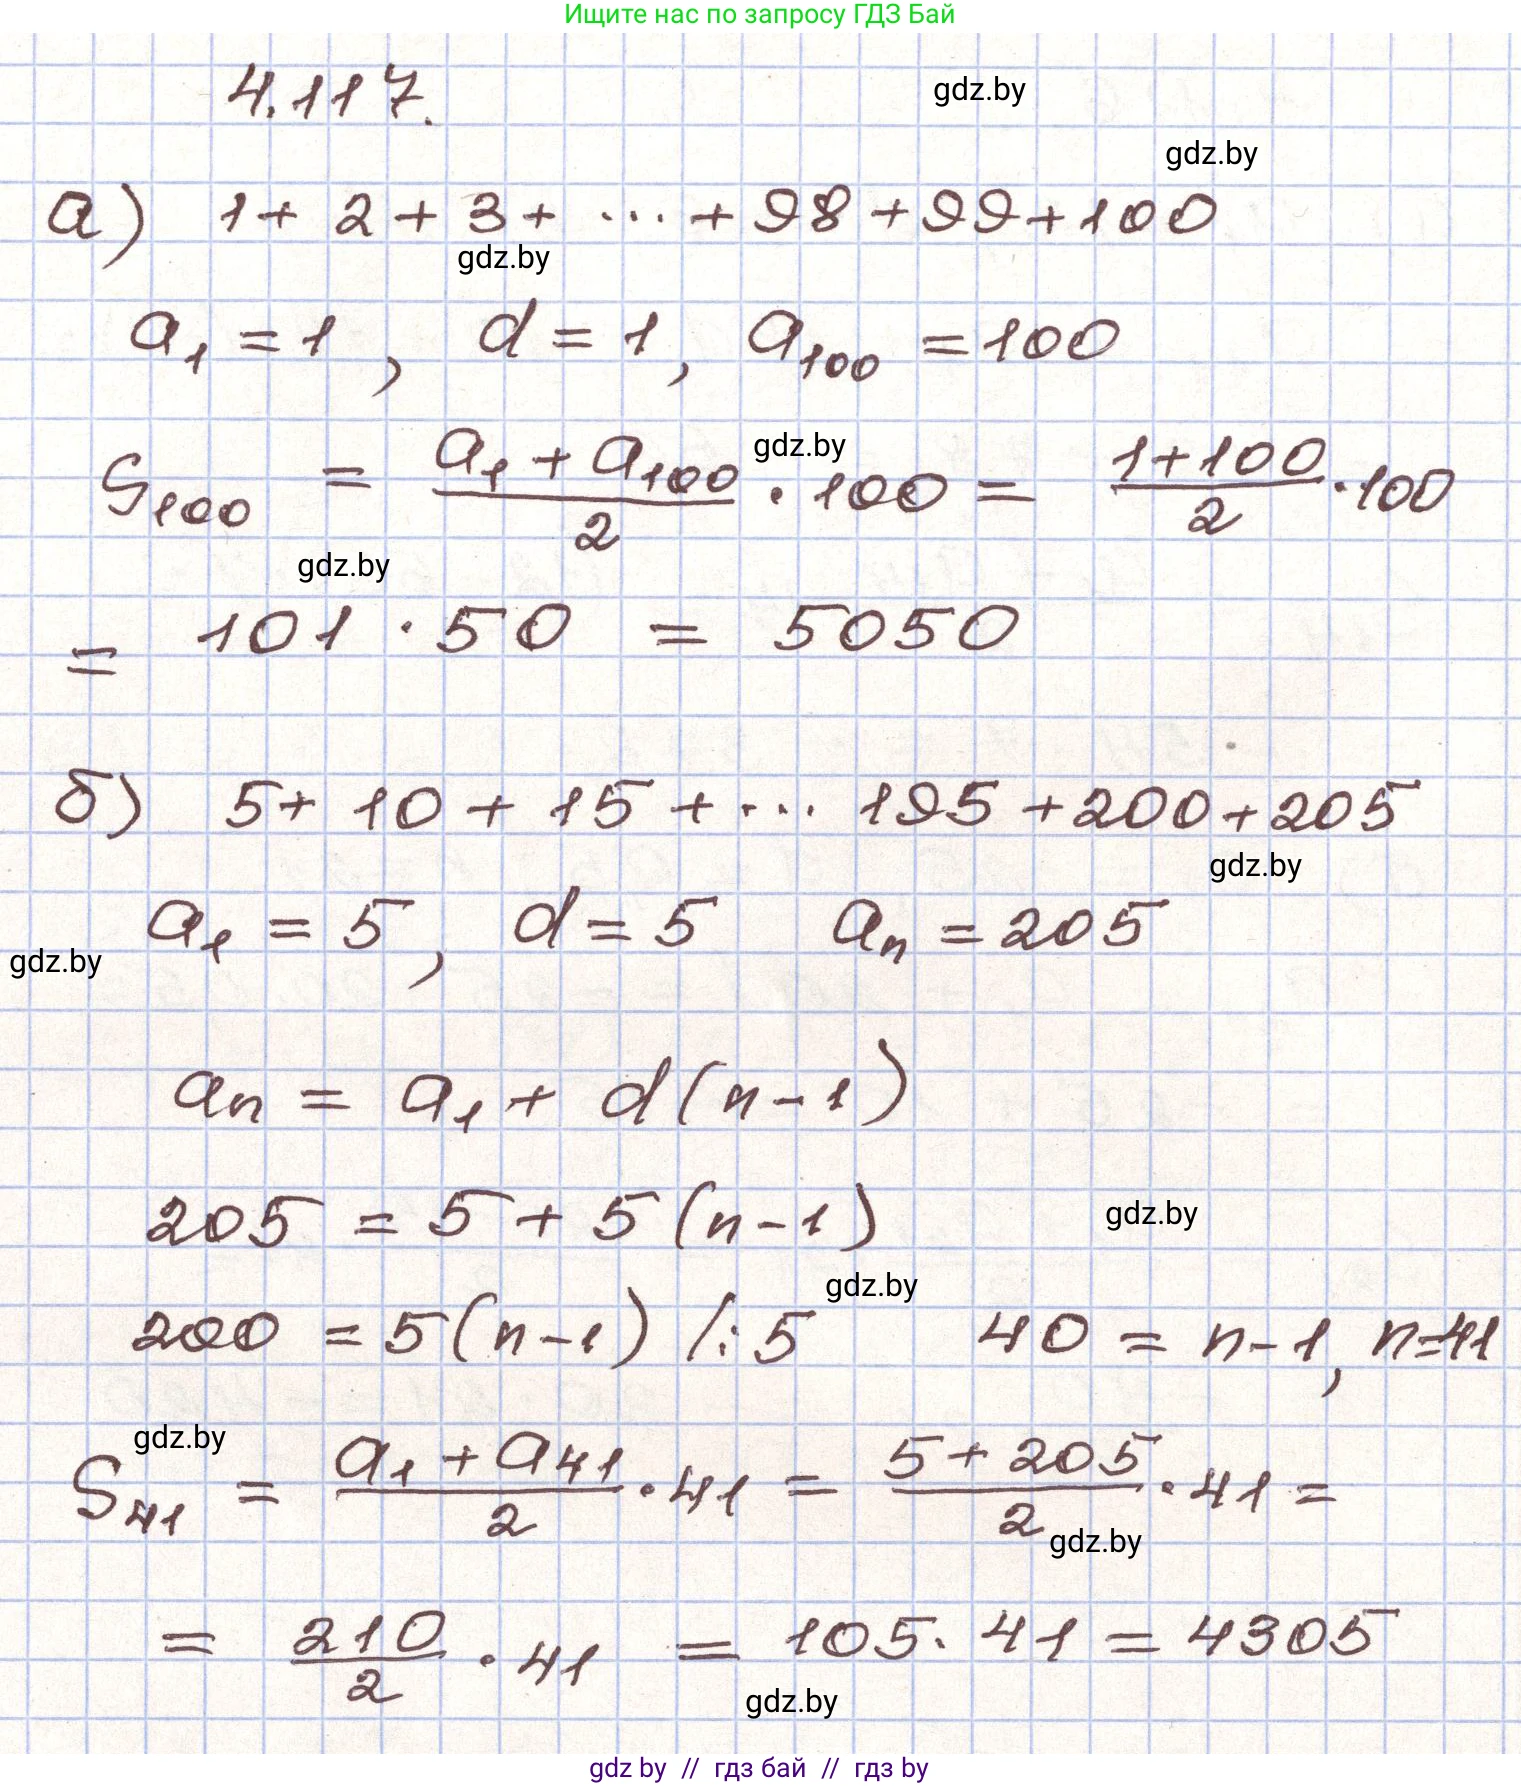 Ищите нас по запросу ГДЗ Бай
4.117.
gdz.by
gdz.by
а) 1 + 2 + 3 + ... + 98 + 99 + 100
gdz.by
a₁ = 1, d = 1, a₁₀₀ = 100
S₁₀₀ = (a₁ + a₁₀₀)/2 · 100 = (1 + 100)/2 · 100
gdz.by
gdz.by
= 101 · 50 = 5050
б) 5 + 10 + 15 + ... 195 + 200 + 205
gdz.by
a₁ = 5, d = 5 aₙ = 205
gdz.by
aₙ = a₁ + d(n - 1)
205 = 5 + 5(n - 1)
gdz.by
gdz.by
200 = 5(n - 1) /: 5 40 = n - 1, n = 41
gdz.by
S₄₁ = (a₁ + a₄₁)/2 · 41 = (5 + 205)/2 · 41 =
gdz.by
= 210/2 · 41 = 105 · 41 = 4305
gdz.by
gdz by // гдз бай // гдз by